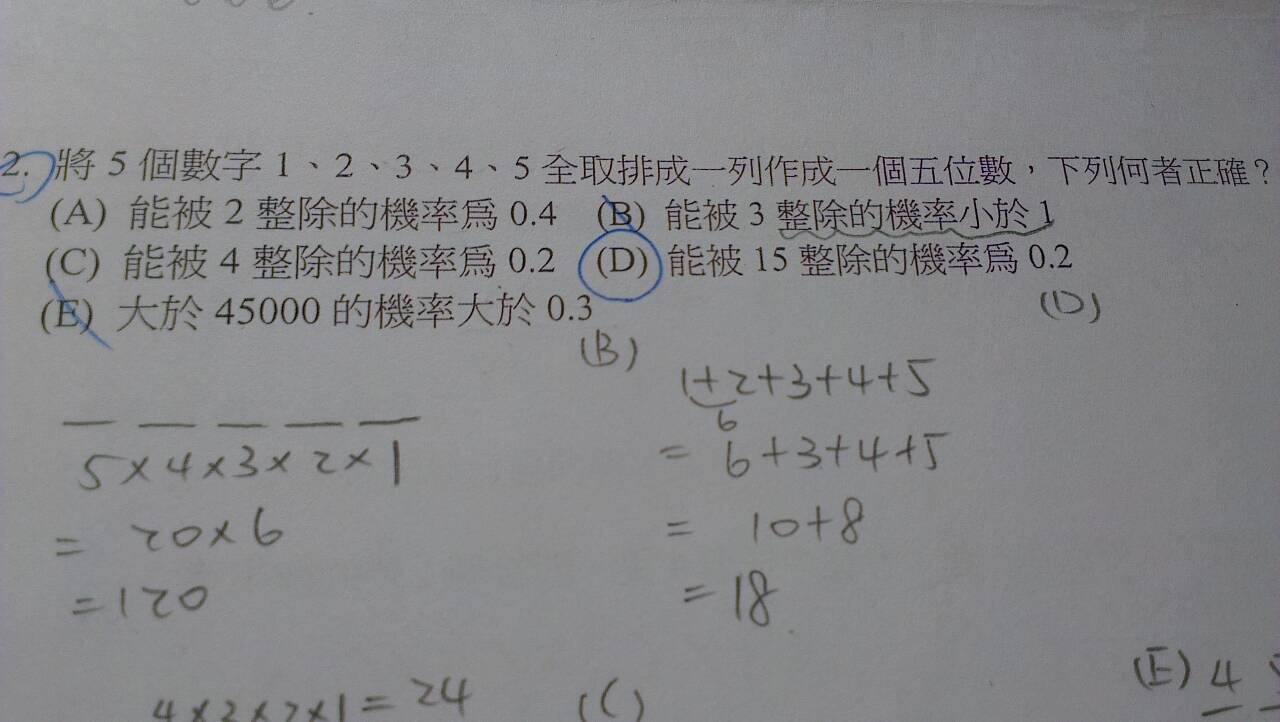 2. 將 5 個數字 1、2、3、4、5 全取排成一列作成一個五位數,下列何者正確?
(A) 能被 2 整除的機率為 0.4 (B) 能被 3 整除的機率小於 1
(C) 能被 4 整除的機率為 0.2 (D) 能被 15 整除的機率為 0.2
(E) 大於 45000 的機率大於 0.3
(D)
(B)
1+2+3+4+5
6
5×4×3×2×1
= 6+3+4+5
= 20×6
= 10+8
=120
= 18
(E) 4
4×3×2×1=24
(C)